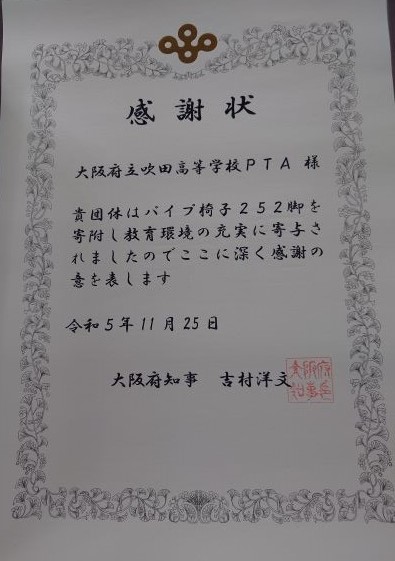 感謝状
大阪府立吹田高等学校PTA 様
貴団体はパイプ椅子252脚を
寄附し教育環境の充実に寄与さ
れましたのでここに深く感謝の
意を表します
令和5年11月25日
大阪府知事 吉村洋文